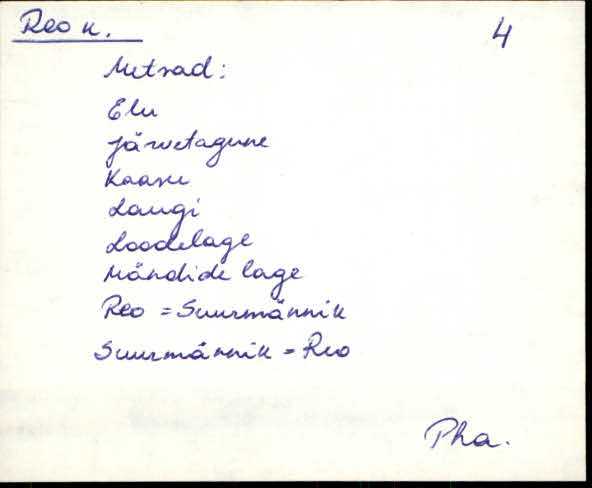 Reo k. 4
Metsad:
Elu
Järvetagune
Kaasu
Laugi
Loodelage
Mändide lage
Reo = Suurmännik
Suurmännik = Reo
Pha.